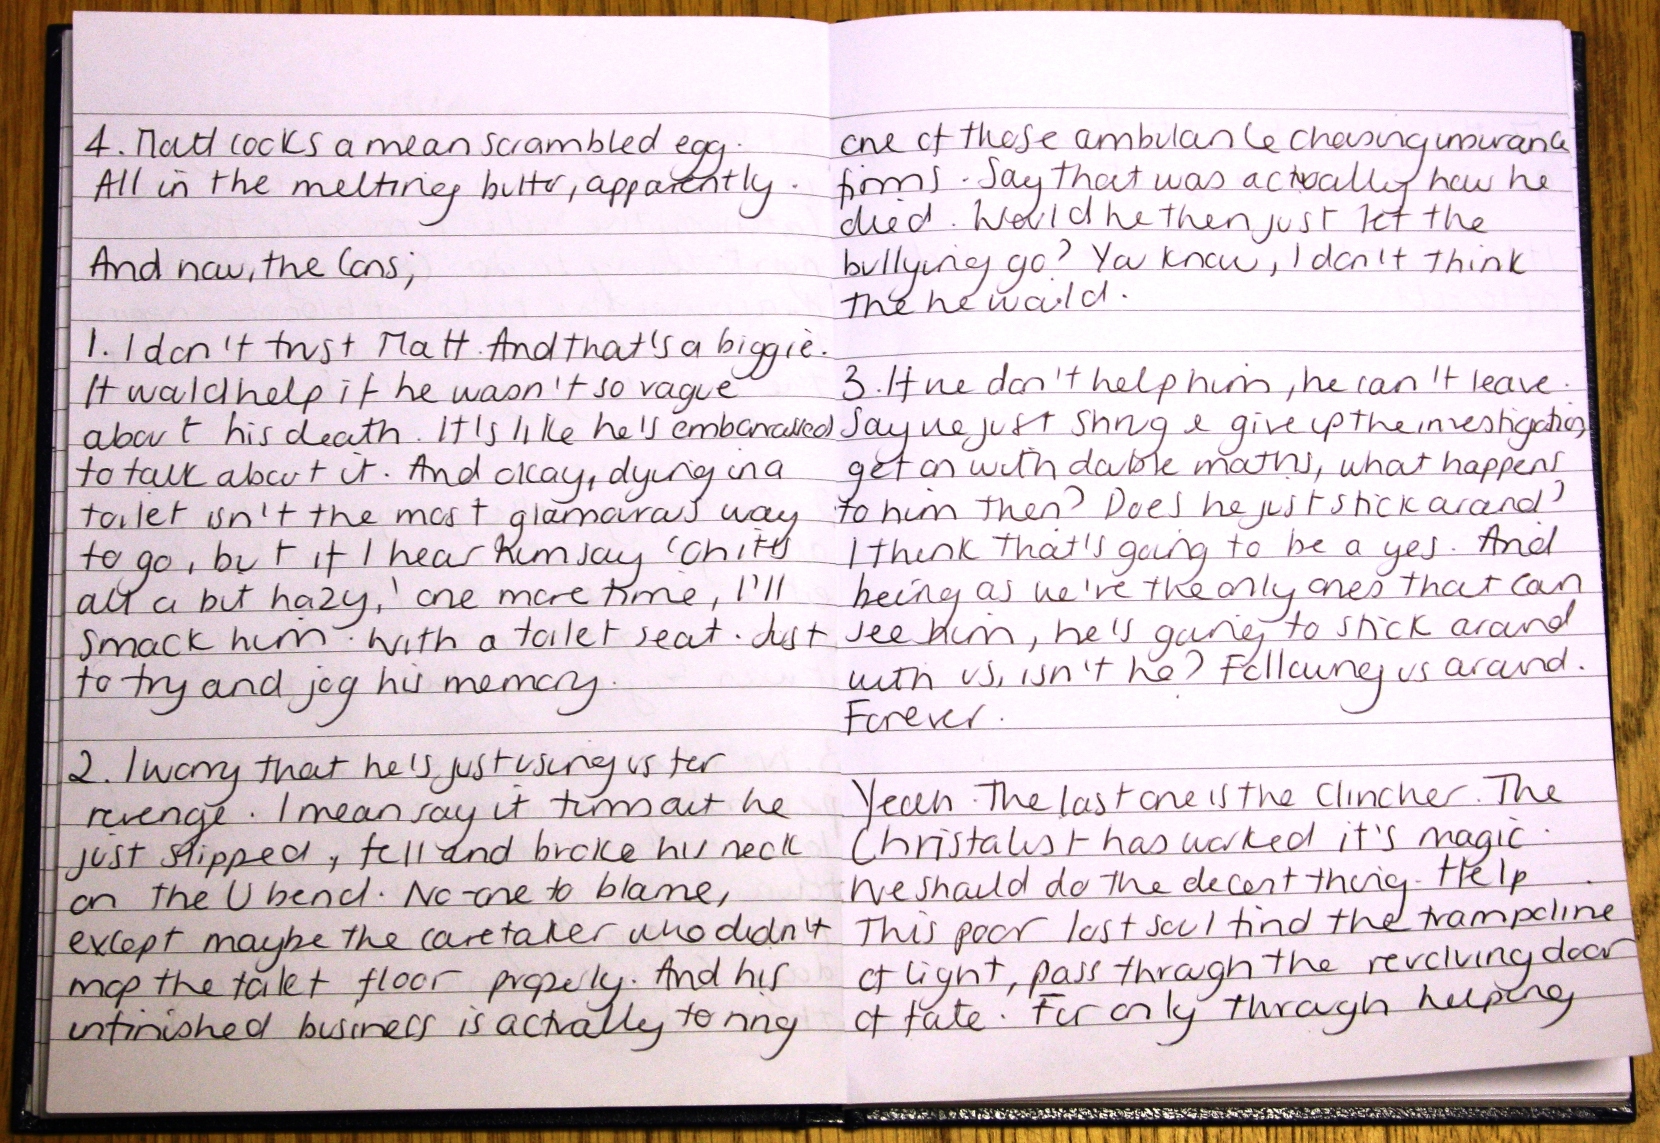 4. Matt cooks a mean scrambled egg.
All in the melting butter, apparently.
And now, the Cons;
1. I don't trust Matt. And that's a biggie.
It would help if he wasn't so vague
about his death. It's like he's embarrassed
to talk about it. And okay, dying in a
toilet isn't the most glamourous way
to go, but if I hear him say 'Oh it's
all a bit hazy,' one more time, I'll
smack him. With a toilet seat. Just
to try and jog his memory.
2. I worry that he's just using us for
revenge. I mean say it turns out he
just slipped, fell and broke his neck
on the U bend. No-one to blame,
except maybe the caretaker who didn't
mop the toilet floor properly. And his
unfinished business is actually to ring
one of those ambulance chasing insurance
firms. Say that was actually how he
died. Would he then just let the
bullying go? You know, I don't think
the he would.
3. If we don't help him, he can't leave.
Say we just shrug & give up the investigation,
get on with double maths, what happens
to him then? Does he just stick around?
I think that's going to be a yes. And
being as we're the only ones that can
see him, he's going to stick around
with us, isn't he? Following us around.
Forever.
Yeah. The last one is the clincher. The
Christalist has worked it's magic.
We should do the decent thing. Help
This poor lost soul find the trampoline
of light, pass through the revolving door
of fate. For only through helping